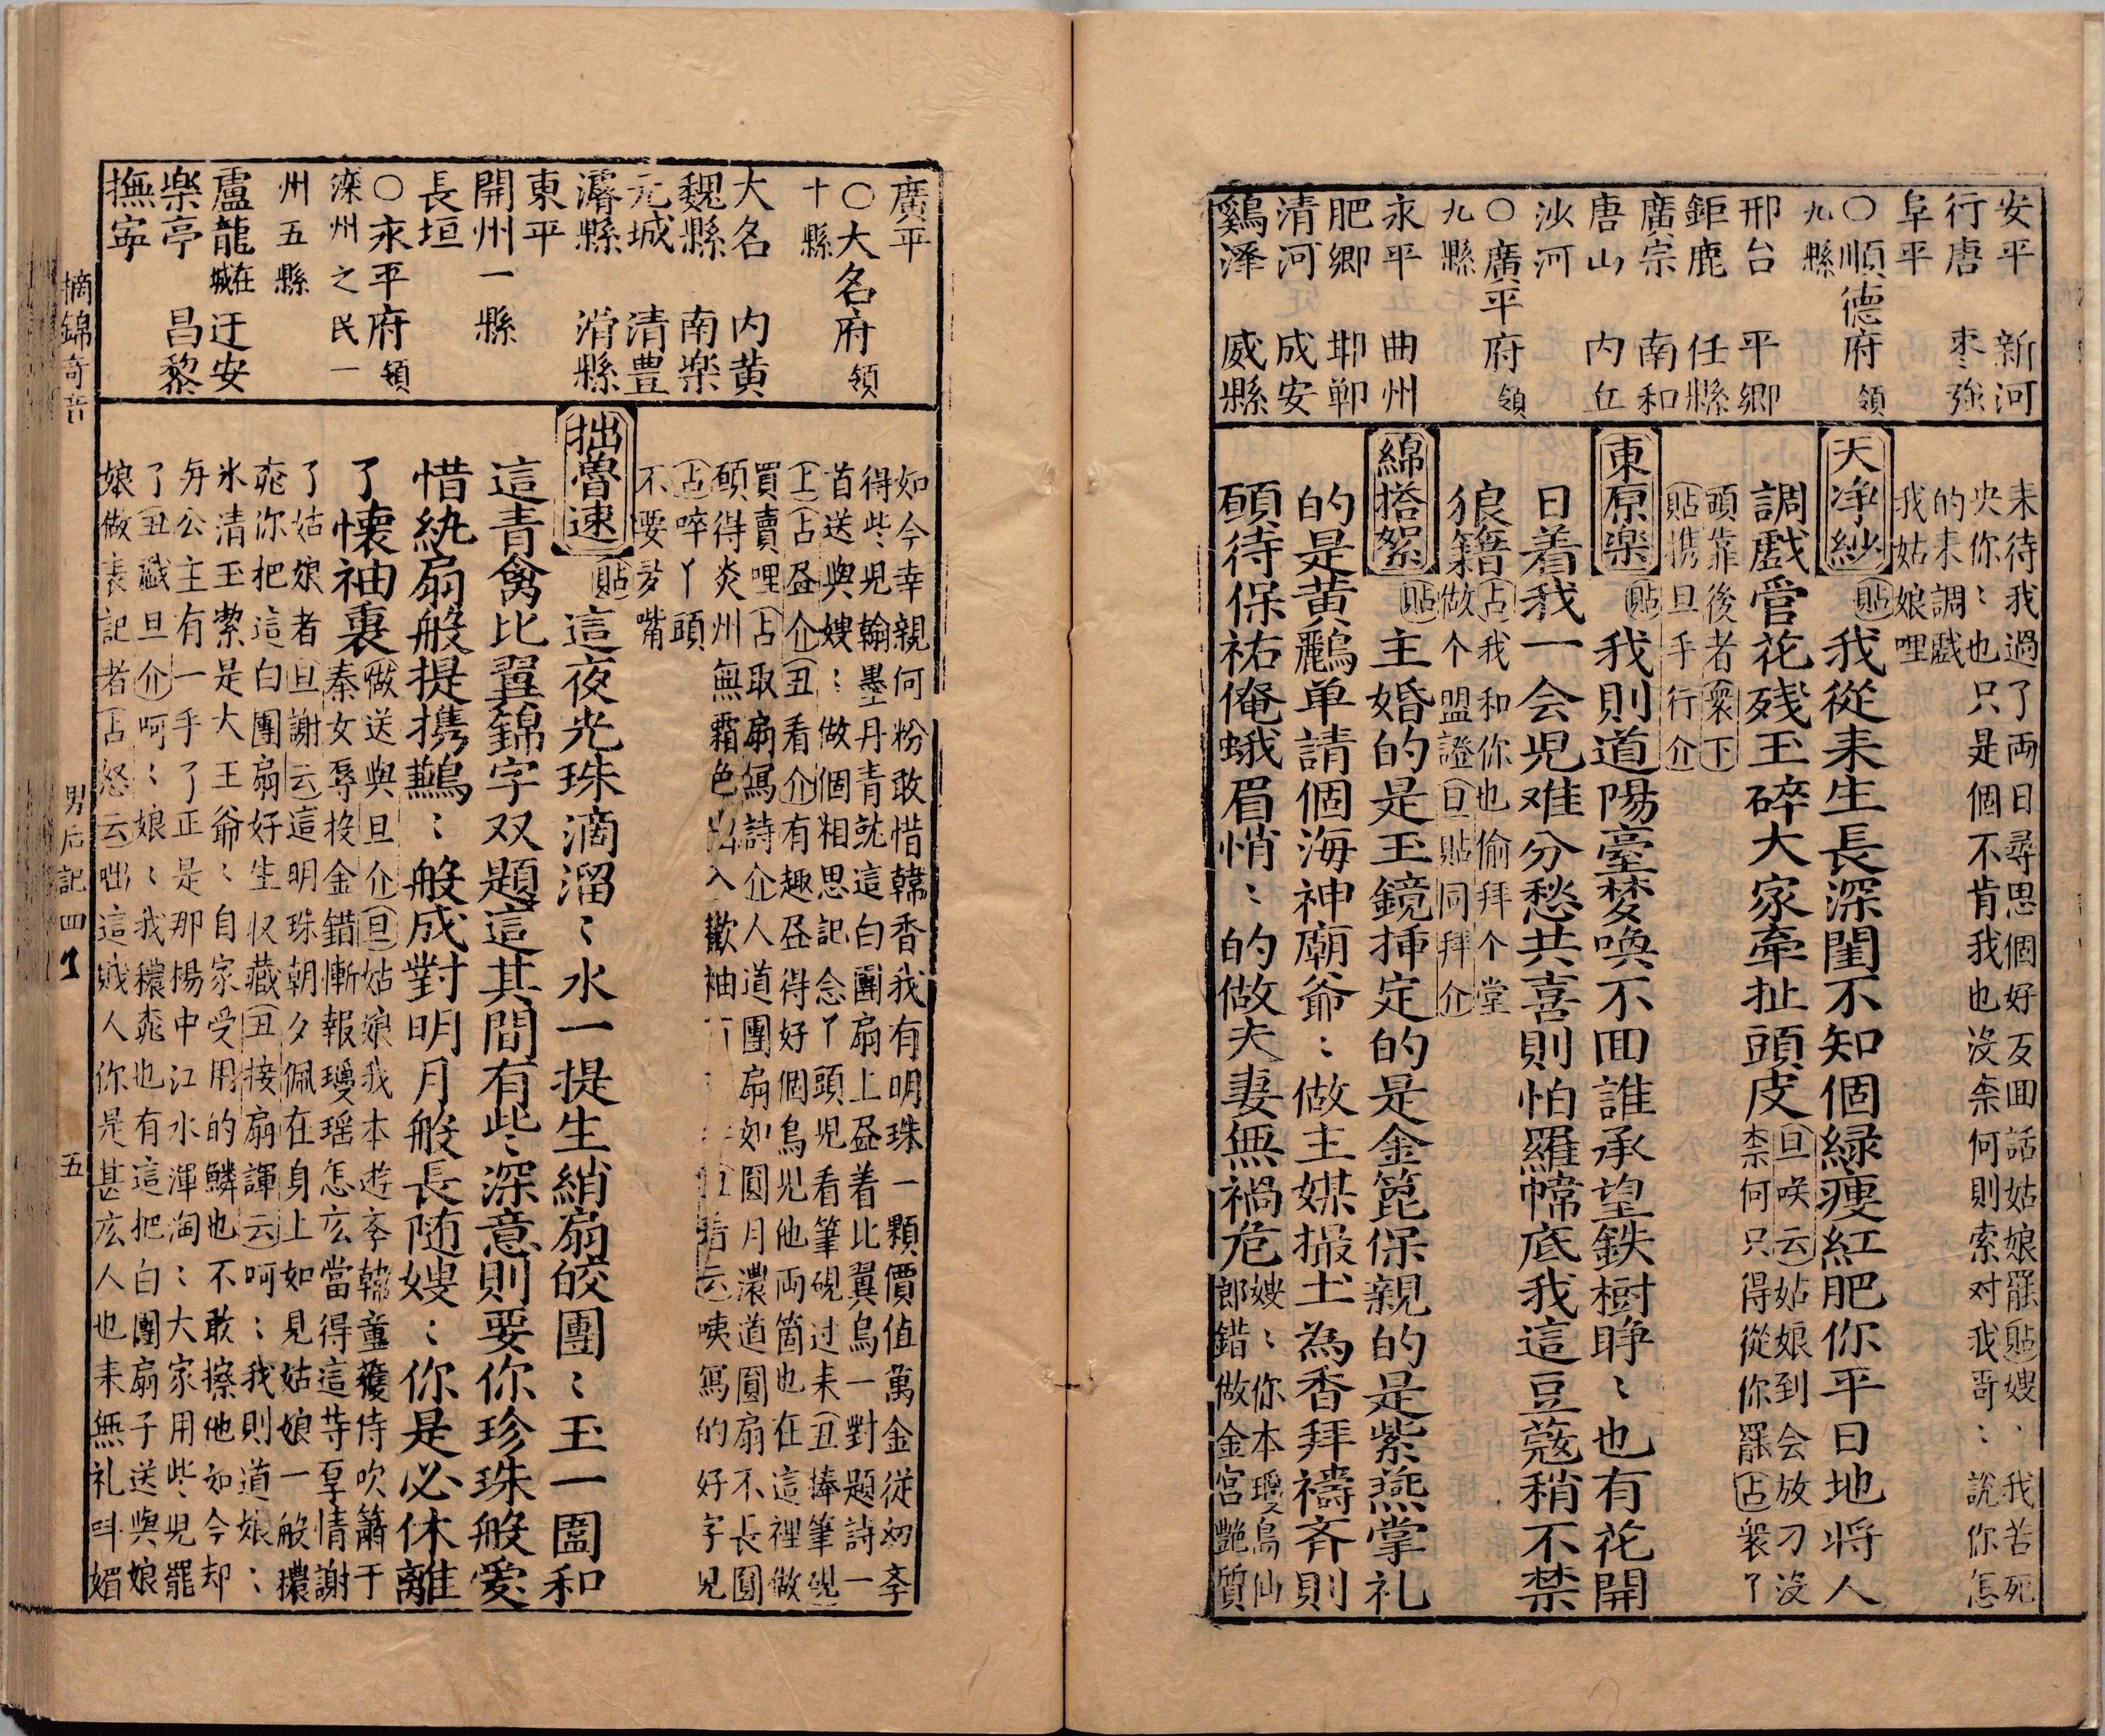 安平 新河
行唐 枣强
阜平
〇順德府領
九縣
邢台 平鄉
鉅鹿 任縣
廣宗 南和
唐山 内丘
沙河
〇廣平府領
九縣
永平 曲州
肥鄉 邯鄲
清河 成安
鷄澤 威縣
耒待我過了両日尋思個好反囬話姑娘罷貼嫂:我苦死
央你:也只是個不肯我也沒柰何則索对我哥:說你怎
的耒調戲
我姑娘哩
天净紗 貼 我從耒生長深閨不知個緑瘦紅肥你平日地将人
調戲管花残玉碎大家牽扯頭皮 旦咲云姑娘到会放刁沒
柰何只得從你罷占衆丫
頭靠後者衆下
貼携旦手行介
東原楽 貼 我則道陽臺梦喚不囬誰承望鉄樹睁:也有花開
日着我一会児难分愁共喜則怕羅幃底我這豆蔻稍不禁
狼籍 占我和你也偷拜个堂
做个盟證旦貼同拜介
綿搭絮 貼 主婚的是玉鏡挿定的是金篦保親的是紫燕掌礼
的是黄鸝单請個海神廟爺:做主媒撮土為香拜禱斉則
頋待保祐俺蛾眉悄:的做夫妻無禍危 嫂:你本瓊島仙
郎錯做金宮艶質
廣平
〇大名府領
十縣
大名 内黄
魏縣 南楽
元城 清豊
濬縣 滑縣
東平
開州一縣
長垣
〇永平府領
滦州之民一
州五縣
盧龍在城 迁安
楽亭 昌黎
撫寧
如今幸親何粉敢惜韓香我有明珠一顆價值萬金從初李
得些児翰墨丹青就這白團扇上𦘕着比翼鳥一對題詩一
首送與嫂:做個相思記念丫頭児看筆硯过耒丑捧筆硯
上占𦘕介丑看介有趣𦘕得好個鳥児他両箇也在這裡做
買賣哩占取扇寫詩介人道團扇如圓月濃道圓扇不長圓
頋得炎州無霜色出入歡袖 看云咦寫的好字児
占啐丫頭
不要多嘴
拙魯速 貼 這夜光珠滴溜:水一提生綃扇皎團:玉一圓和
這青禽比翼錦字双題這其間有些深意則要你珍珠般愛
惜紈扇般提携鶼:般成對明月般長随嫂:你是必休離
了懐袖裏 做送與旦介旦姑娘我本遊李韓童獲侍吹簫于
秦女辱投金錯慚報瓊瑶怎広當得這等享情謝
了姑娘者旦謝云這明珠朝夕佩在身上如見姑娘一般穠
桃你把這白團扇好生収藏丑接扇諢云呵:我則道娘:
氷清玉絜是大王爺:自家受用的鱗也不敢擦他如今却
毎公主有一手了正是那楊中江水渾淘:大家用些児罷
了丑藏旦介呵:娘:我穠桃也有這把白團扇子送與娘
娘做表記者占怒云咄這賊人你是甚広人也耒無礼呌媚
摘錦奇音
男后記四卜
五